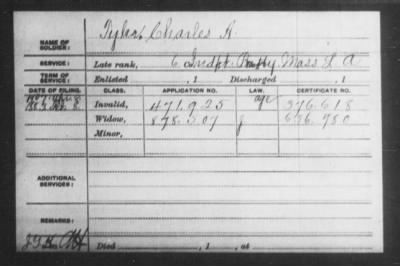 NAME OF SOLDIER: Tyler, Charles A.
SERVICE: Late rank, 6 Indpt. Batty Mass L A
TERM OF SERVICE: Enlisted , 1 Discharged , 1
DATE OF FILING. CLASS. APPLICATION NO. LAW. CERTIFICATE NO.
Invalid, 471.925 age 376.618
Widow, 878.307 636.950
Minor,
ADDITIONAL SERVICES:
REMARKS:
Died , 1 , at